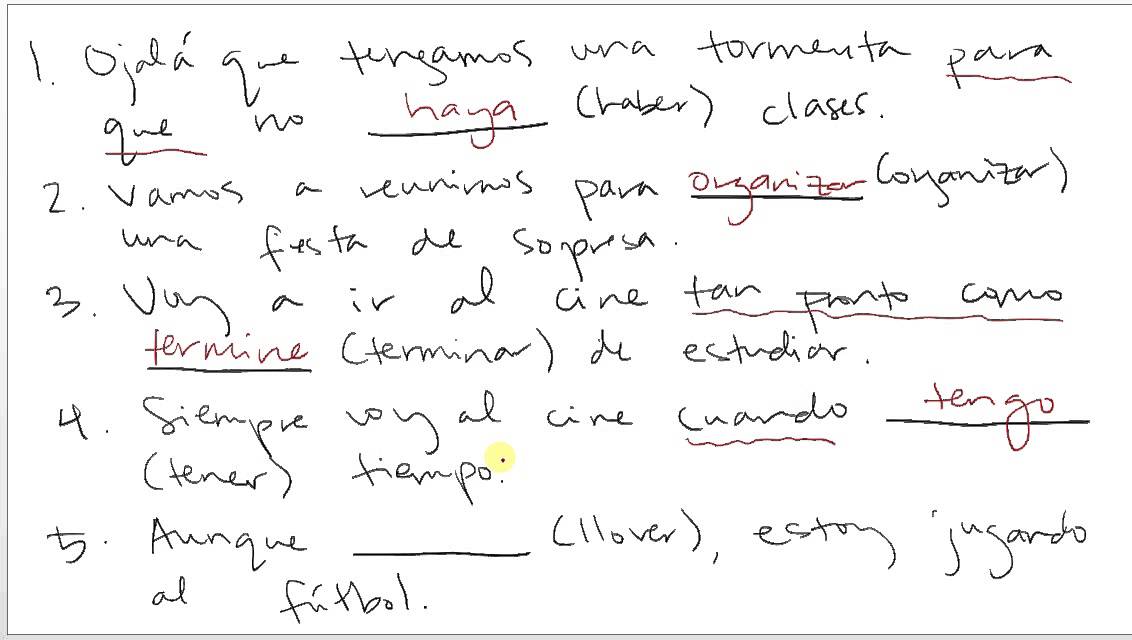 1. Ojalá que tengamos una tormenta para
que no haya (haber) clases.
2. Vamos a reunirnos para organizar (organizar)
una fiesta de sorpresa.
3. Voy a ir al cine tan pronto como
termine (terminar) de estudiar.
4. Siempre voy al cine cuando tengo
(tener) tiempo.
5. Aunque ______ (llover), estoy jugando
al fútbol.